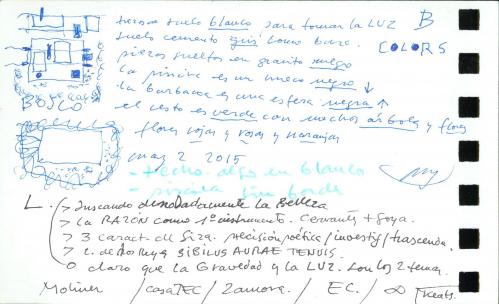 suelo blanco para tomar la LUZ B
suelo cemento gris como base. COLORS
piezas sueltas en granito negro
la piscina es un hueco negro ↓
la barbacoa es una esfera negra ↑
el resto es verde con muchos árboles y flores
BOSCO
flores rojas y rosas y naranjas
may 2 2015
- techo algo en blanco
- piscina sin borde
L. > buscando denodadamente la Belleza
> la RAZÓN como 1º instrumento. Cervantes + Goya.
> 3 caract. de Siza. precisión poética / investig / trascenden.
> SIBILUS AURAE TENUIS.
O claro que la Gravedad y la LUZ. son los 2 temas.
Moliner / casa TEC / Zamora. / EC. / ∞ Keats.